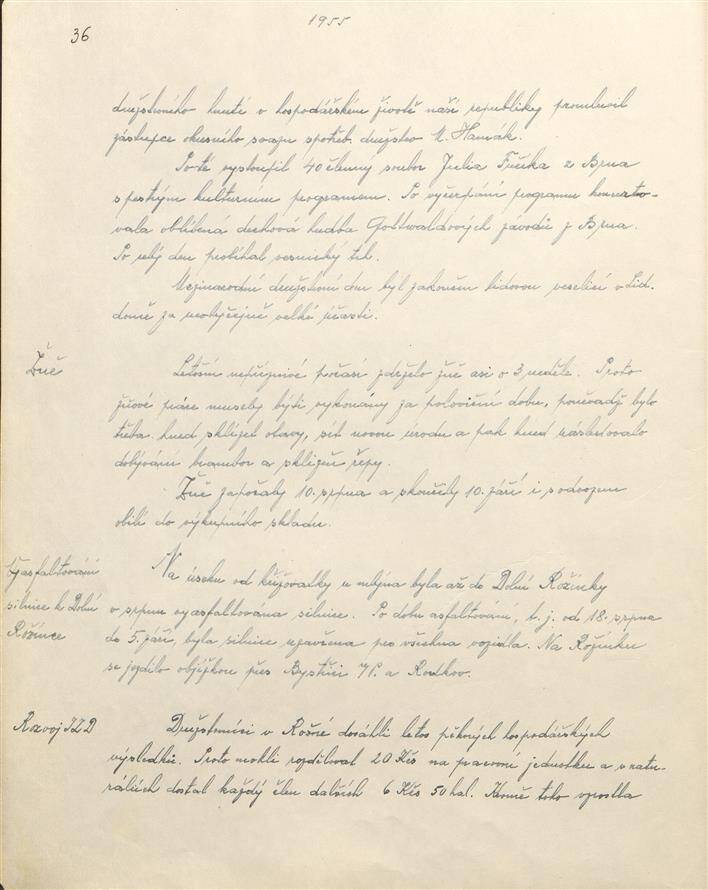 1955
36
družstevního hnutí v hospodářském životě naší republiky promluvil
zástupce okresního svazu spotřeb. družstev M. Hamák.
Poté vystoupil 40 členný soubor Julia Fučíka z Brna
s pestrým kulturním programem. Po vyčerpání programu koncerto-
vala oblíbená dechová hudba Gottwaldových závodů z Brna.
Po celý den probíhal vesnický trh.
Mezinárodní družstevní den byl zakončen lidovou veselicí v Lid.
domě za neobyčejně velké účasti.
Žně
Letošní nepříznivé počasí zdrželo žně asi o 3 neděle. Proto
žňové práce musely býti vykonány za poloviční dobu, poněvadž bylo
třeba hned sklízet otavy, sít novou úrodu a pak hned následovalo
dobývání brambor a sklizeň řepy.
Žně započaly 10. srpna a skončily 10. září i s odvozem
obilí do výkupního skladu.
Vyasfaltování
silnice k Dolní
Rožínce
Na úseku od křižovatky u mlýna byla až do Dolní Rožínky
v srpnu vyasfaltována silnice. Po dobu asfaltování, t. j. od 18. srpna
do 5. září, byla silnice uzavřena pro všechna vozidla. Na Rožínku
se jezdilo objížďkou přes Bystřici n/P. a Rodkov.
Rozvoj JZD
Družstevníci v Rožné dosáhli letos pěkných hospodářských
výsledků. Proto mohli rozdělovat 20 Kčs na pracovní jednotku a v natu-
ráliích dostal každý člen dalších 6 Kčs 50 hal. Kromě toho vzrostla